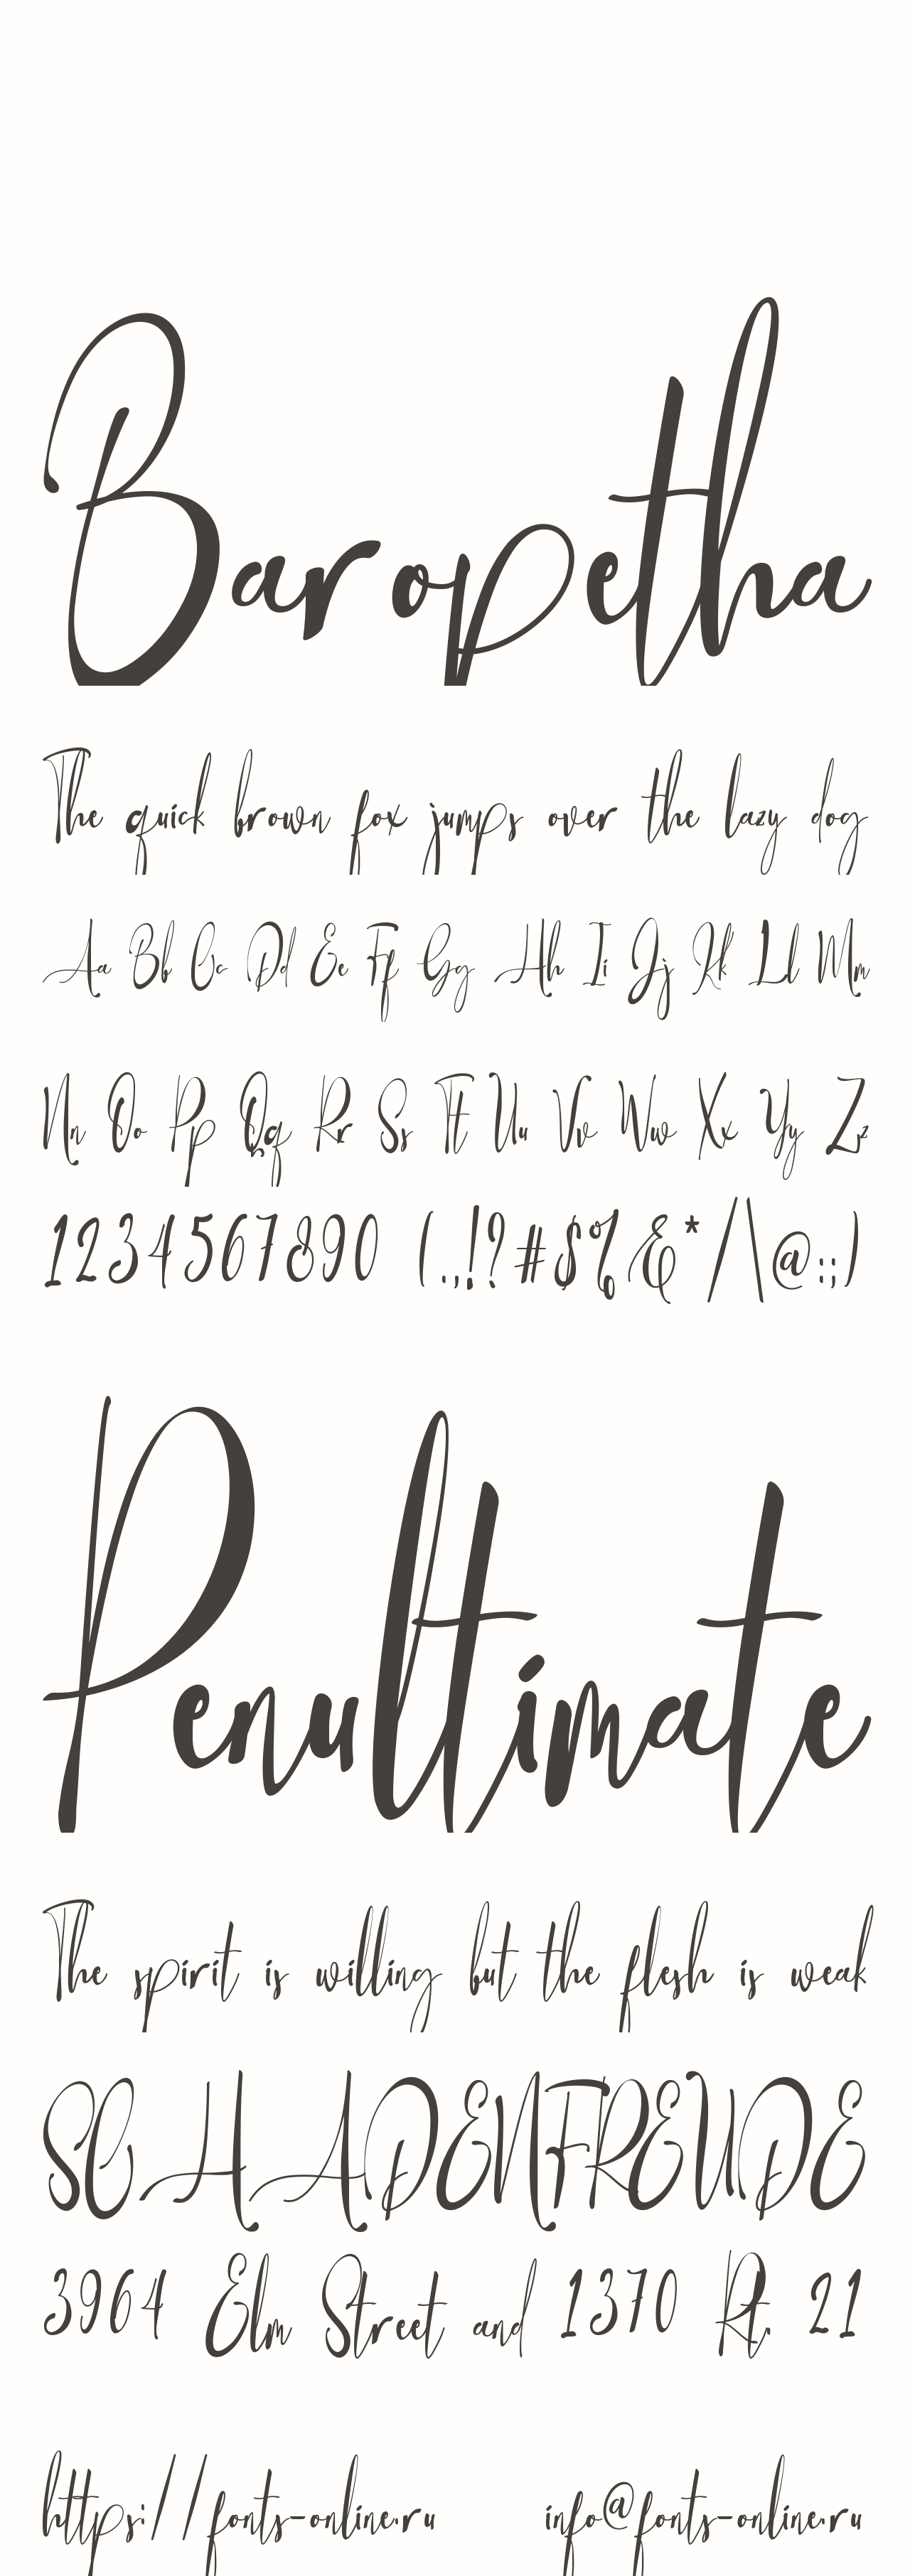 Baropetha
The quick brown fox jumps over the lazy dog
Aa Bb Cc Dd Ee Ff Gg Hh Ii Jj Kk Ll Mm
Nn Oo Pp Qq Rr Ss Tt Uu Vv Ww Xx Yy Zz
1234567890 (.,!?#$%&*/\@:;)
Penultimate
The spirit is willing but the flesh is weak
SCHADENFREUDE
3964 Elm Street and 1370 Rt. 21
https://fonts-online.ru info@fonts-online.ru